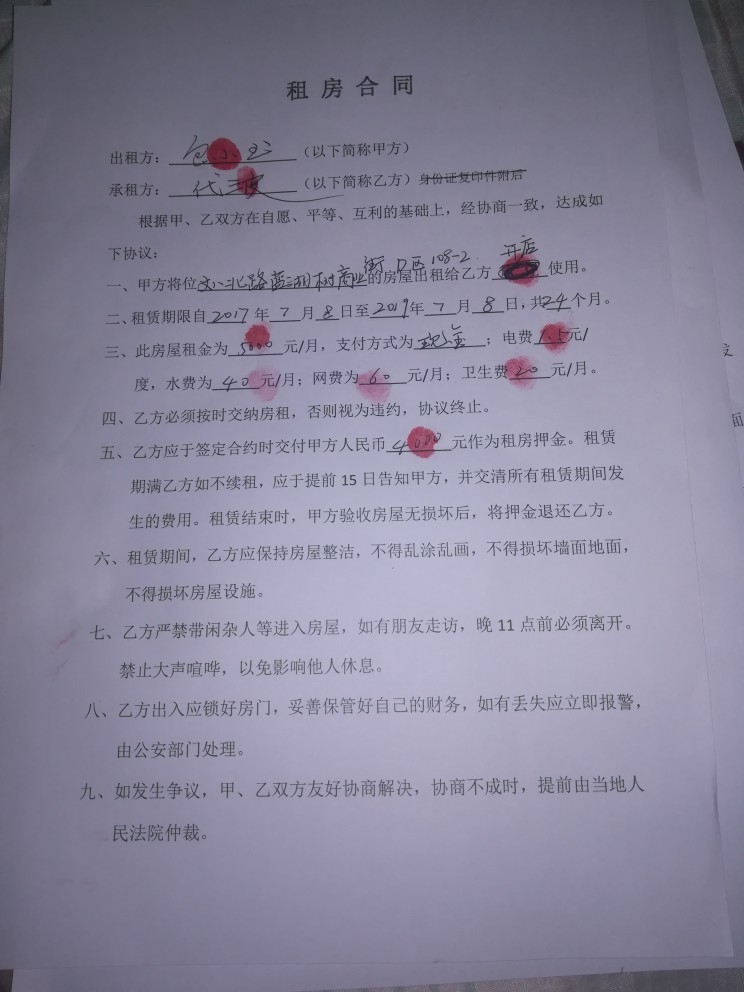 租房合同
出租方：包小玉（以下简称甲方）
承租方：代三皮（以下简称乙方）身份证复印件附后
根据甲、乙双方在自愿、平等、互利的基础上，经协商一致，达成如
下协议：
一、甲方将位文八北路蓝湖树商业街D区108-2的房屋出租给乙方开店使用。
二、租赁期限自2017年7月8日至2019年7月8日，共24个月。
三、此房屋租金为5000元/月，支付方式为现金；电费1.5元/
度，水费为40元/月；网费为60元/月；卫生费20元/月。
四、乙方必须按时交纳房租，否则视为违约，协议终止。
五、乙方应于签定合约时交付甲方人民币4000元作为租房押金。租赁
期满乙方如不续租，应于提前15日告知甲方，并交清所有租赁期间发
生的费用。租赁结束时，甲方验收房屋无损坏后，将押金退还乙方。
六、租赁期间，乙方应保持房屋整洁，不得乱涂乱画，不得损坏墙面地面，
不得损坏房屋设施。
七、乙方严禁带闲杂人等进入房屋，如有朋友走访，晚11点前必须离开。
禁止大声喧哗，以免影响他人休息。
八、乙方出入应锁好房门，妥善保管好自己的财务，如有丢失应立即报警，
由公安部门处理。
九、如发生争议，甲、乙双方友好协商解决，协商不成时，提前由当地人
民法院仲裁。
发
面